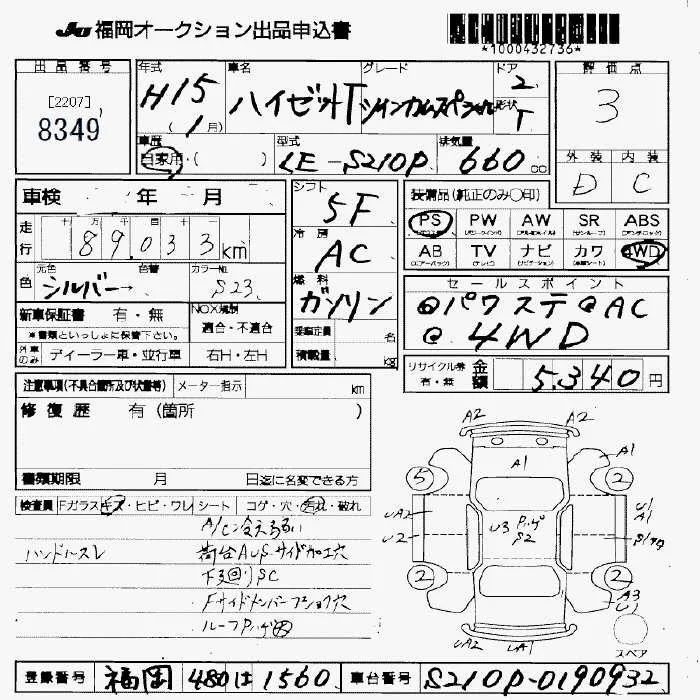 JU 福岡オークション出品申込書
*1000432736*
出品番号
[2207]
8349
年式 車名 グレード ドア
H15 ハイゼットT ツインカムスペシャル 2
(1月) 形状 T
車歴 型式 排気量
自家用・( ) LE-S210P 660 cc
評価点
3
外装 内装
D C
車検 年 月
走行 十 万 千 百 十
89,033 km
元色 色替 カラーNo.
色 シルバー→ S23
新車保証書 有・無
*書類といっしょに保管下さい。
NOX規制
適合・不適合
外車のみ ディーラー車・並行車 右H・左H
シフト
5F
冷房
AC
燃料
ガソリン
乗車定員 名
積載量 kg
装備品(純正のみ○印)
PS PW AW SR ABS
AB TV ナビ カワ 4WD
セールスポイント
@パワステ @AC
@4WD
リサイクル券 有・無 金額 5,340 円
注意事項(不具合箇所及び状書等) メーター指示 km
修復歴 有(箇所 )
書類期限 月 日迄に名変できる方
検査員 Fガラス キズ・ヒビ・ワレ シート コゲ・穴・汚れ・破れ
A/C冷えるい
ハンドルスレ 荷台AUSサイド加工穴
下回りSC
Fサイドメンバーフショク穴
ルーフPハゲ
A2 A2
A1 A1
5 2
UA2 U3 Pハゲ U1
U2 S2 A1
S1
2 2
A3
U1
UA2 UA1
スペア
登録番号 福岡 480 は 1560 車台番号 S210P-0190932